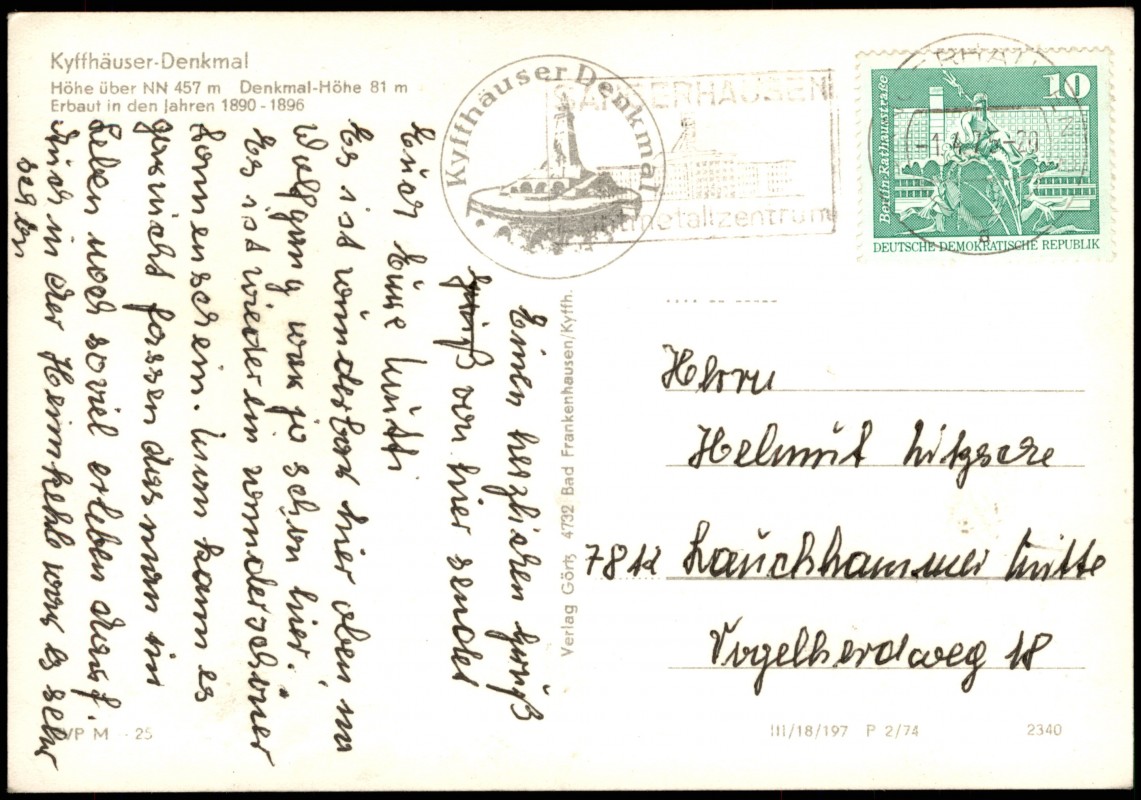 Kyffhäuser-Denkmal
Höhe über NN 457 m Denkmal-Höhe 81 m
Erbaut in den Jahren 1890 - 1896
Kyffhäuser Denkmal
SANGERHAUSEN
metallzentrum
10
Berlin-Rathausstraße
DEUTSCHE DEMOKRATISCHE REPUBLIK
Einen herzlichen Gruß
von hier sendet
Euch Eure Mutti
Es ist wunderbar hier oben, nu
Wolfgang war ja schon hier.
Es ist wieder ein wunderschöner
Sonnenschein. Mann kann es
gar nicht fassen das man im
Leben noch soviel erleben darf.
Auch in der Heimkehle war es sehr
schön
Verlag Görtz 4732 Bad Frankenhausen/Kyffh.
Herrn
Helmut
Lauchhammer Mitte
Vogelherdweg 18
M - 25
III/18/197 P 2/74
2340